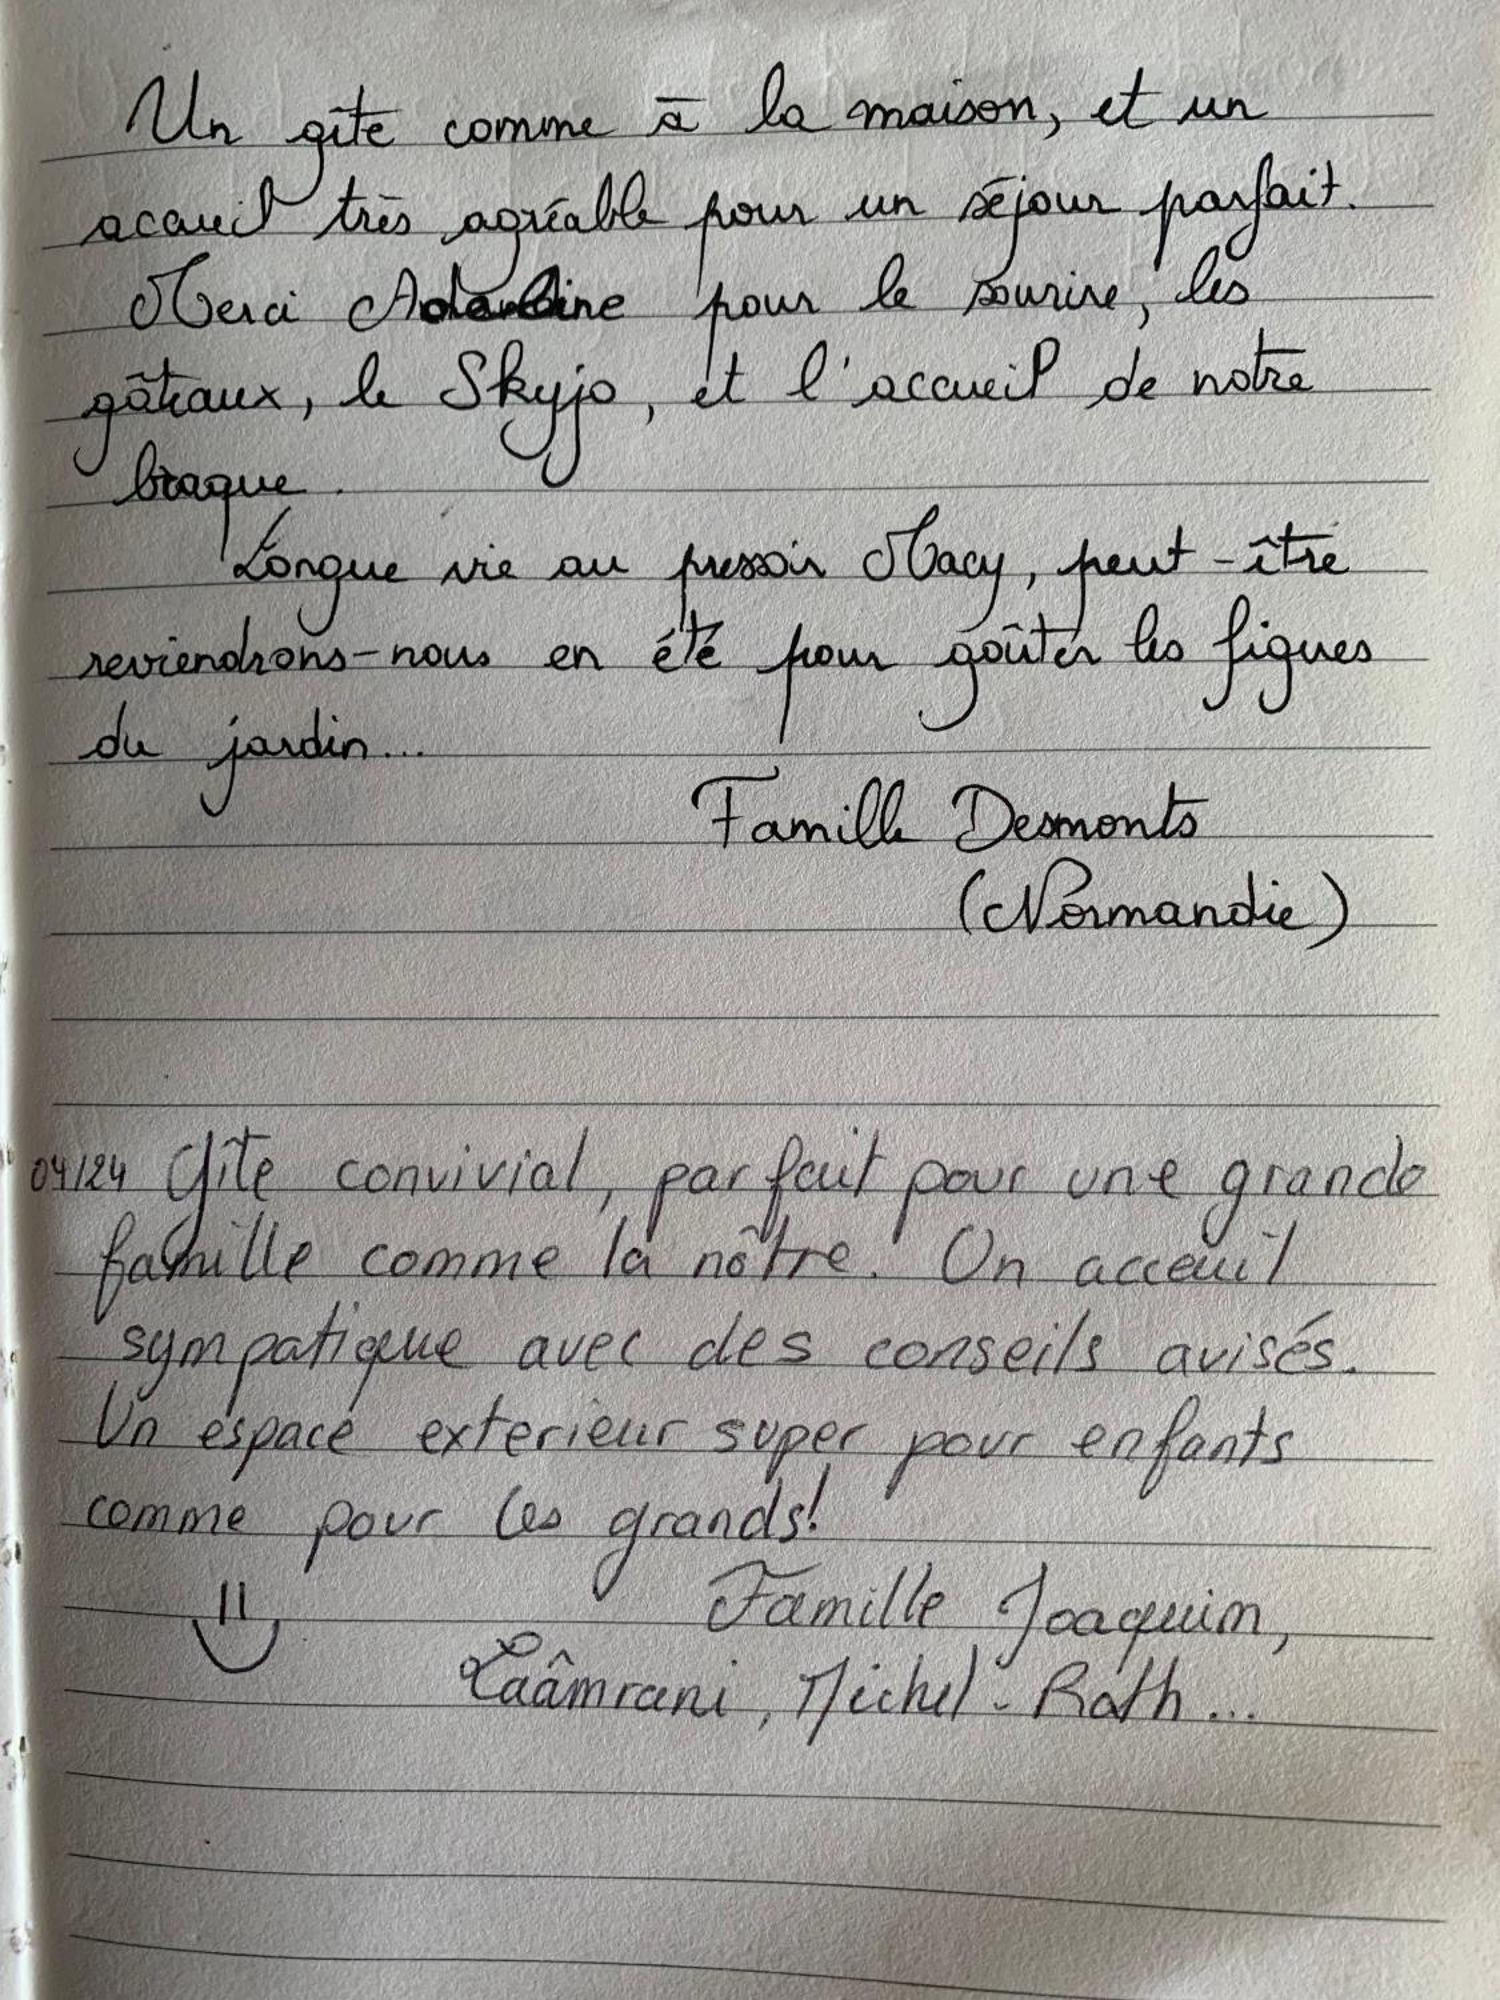 Un gîte comme à la maison, et un
accueil très agréable pour un séjour parfait.
Merci pour le sourire, les
gâteaux, le Skyjo, et l'accueil de notre
braque.
Longue vie au pressoir Macy, peut-être
reviendrons-nous en été pour goûter les figues
du jardin...
Famille Desmonts
(Normandie)
04/24 Gîte convivial, parfait pour une grande
famille comme la nôtre. Un acceuil
sympatique avec des conseils avisés.
Un espace exterieur super pour enfants
comme pour les grands!
Famille Joaquim,
Laâmrani, Michel-Roth...